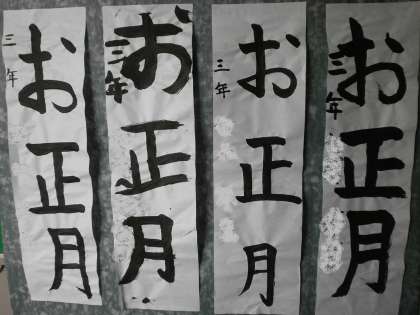 お正月
三年
お正月
三年
お正月
三年
お正月
三年